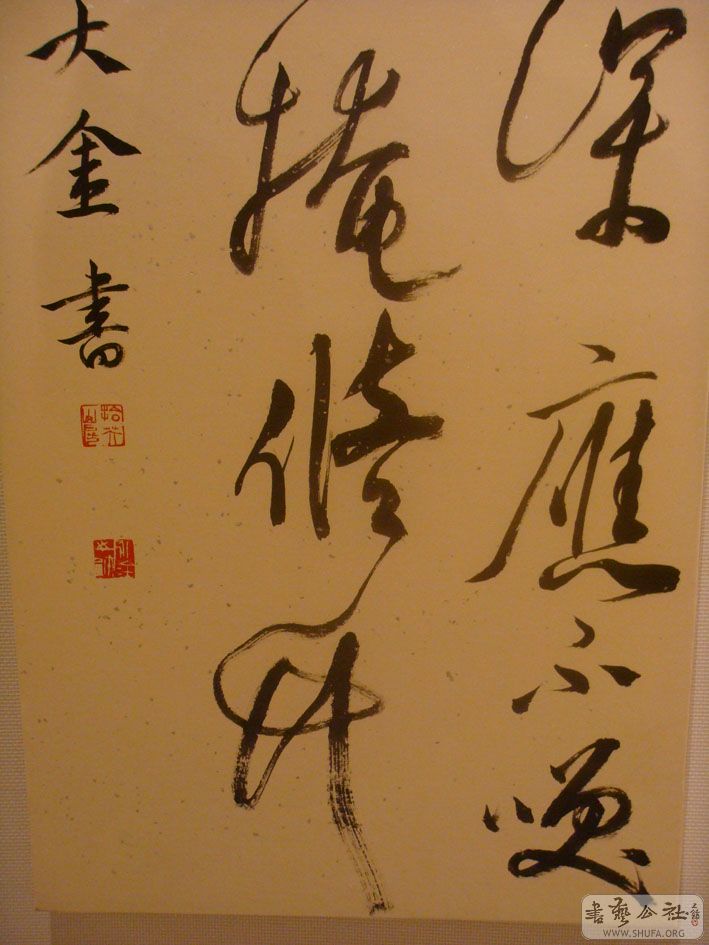 深應不
掩修竹
大金書
書藝公社
WWW.SHUFA.ORG